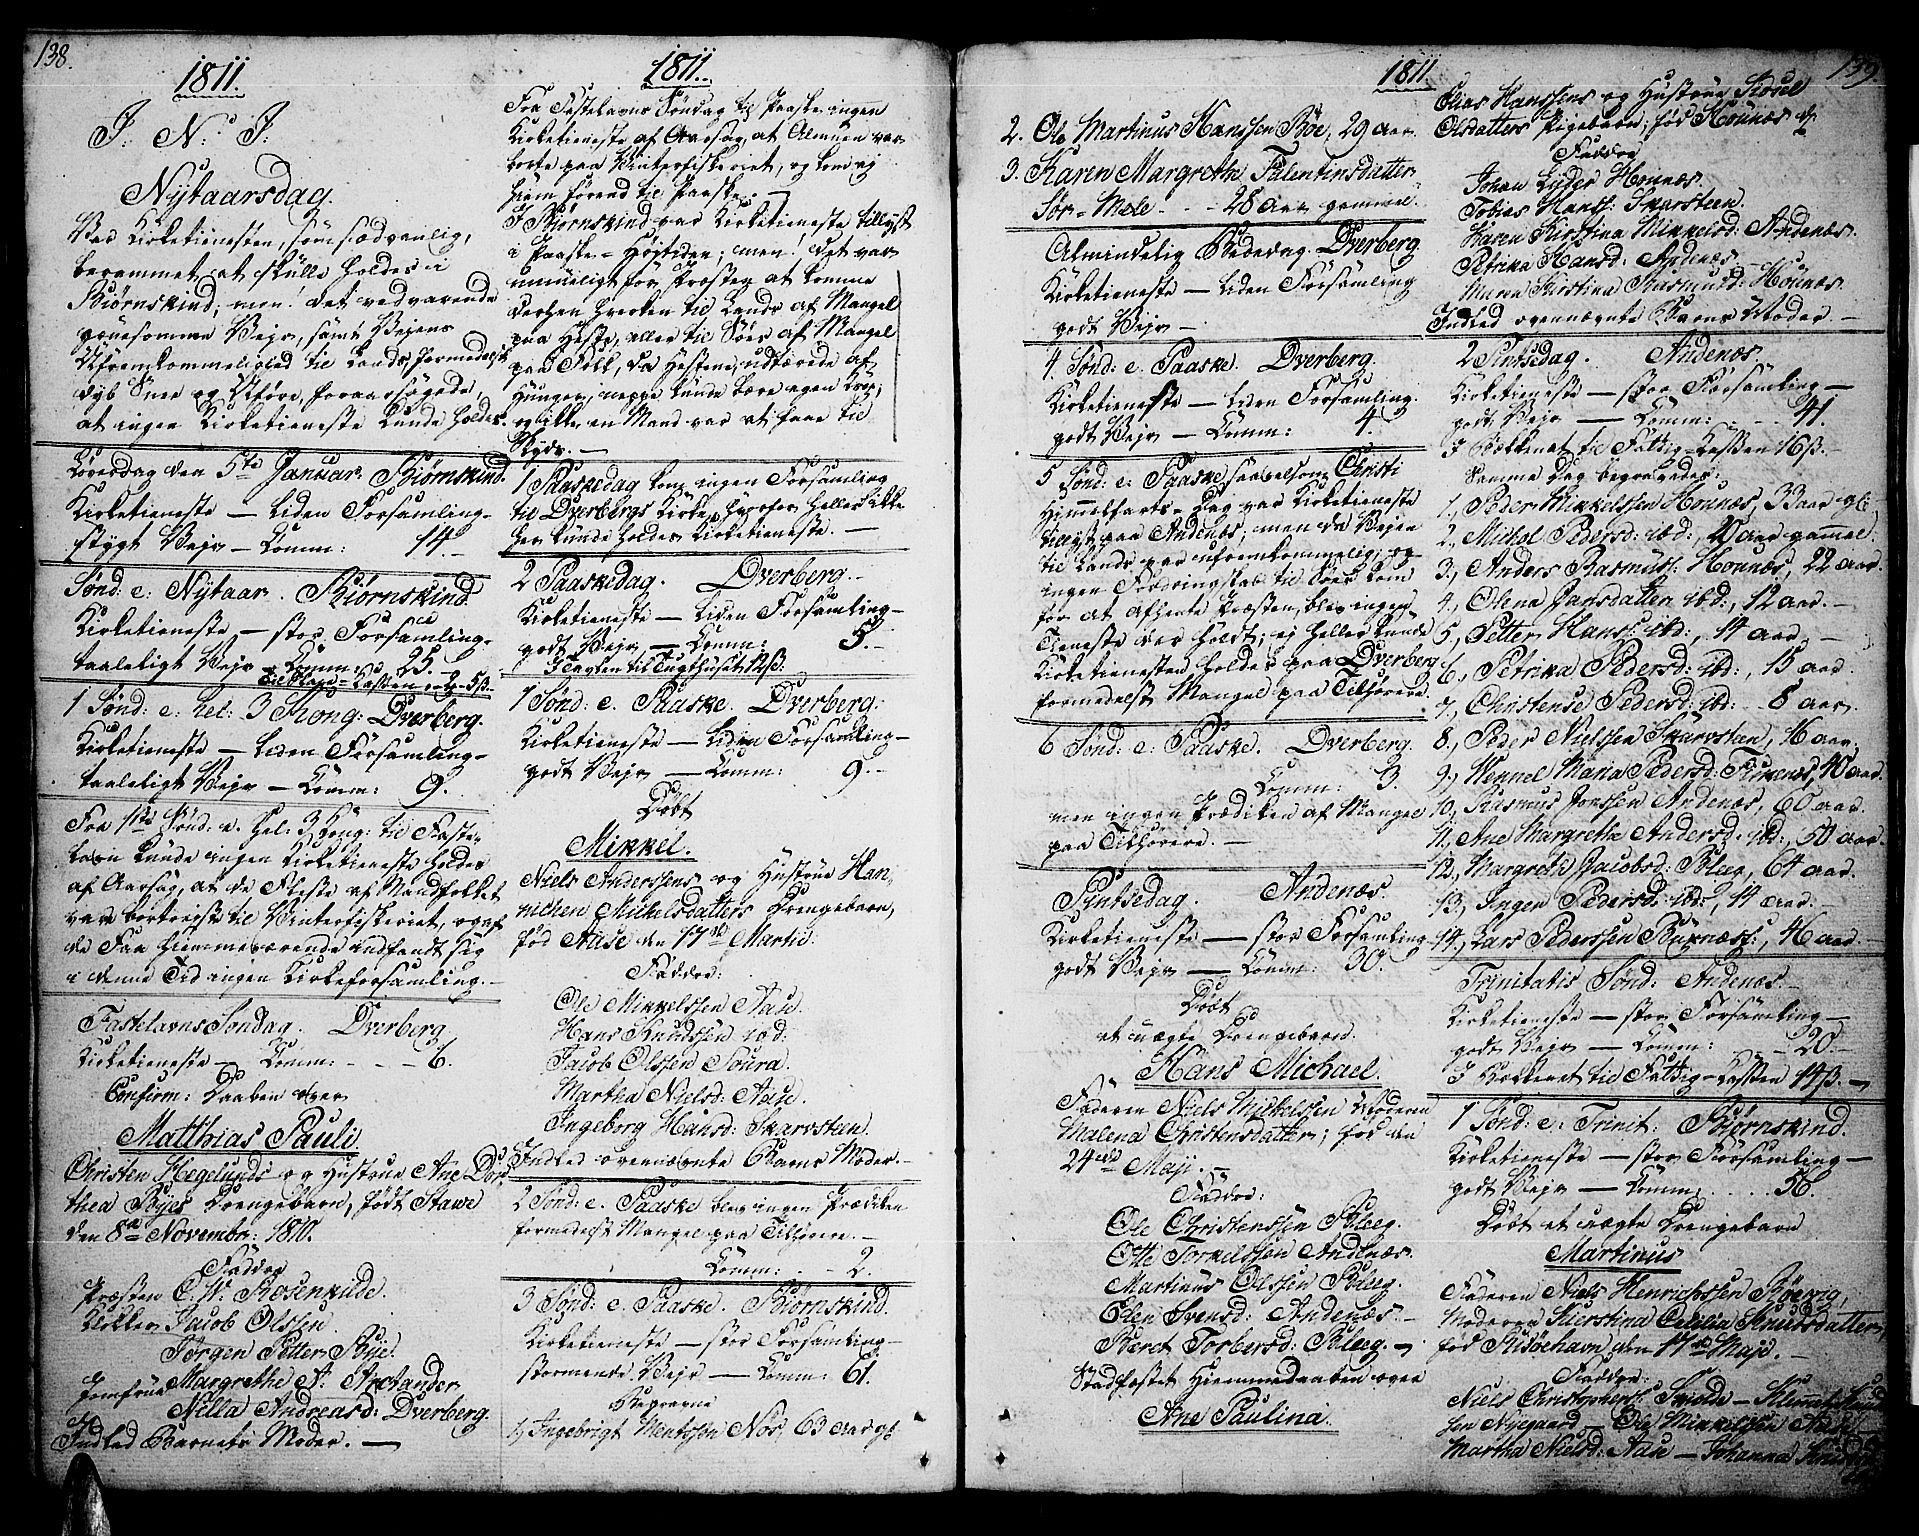 138.
1811.
J. N. J.
Nÿtaarsdag.
Var Kirketienesten, som sædvanlig,
berammet at skulle holdes i
Biørnskind; men! det vedvarende
grueesomme Vejr, samt Vejens
Ufremkommelighed til Lands, formedelst
dyb Snee og Uføre, foraarsagede
at ingen Kirketieneste kunde holdes.
Løverdag den 5te Januar. Biørnskind.
Kirketieneste — liden Forsamling.
stygt Vejr — Comm: 14.
Sønd: e: Nytaar. Biørnskind.
Kirketieneste — stor Forsamling.
taaleligt Vejr — Comm: 25.
1 Sønd: e: hel: 3 Kong: Dverberg.
Kirketieneste — liden Forsamling.
taaleligt Vejr — Comm: 9.
Fra 1ste Sønd: e. hel: 3 Kong: til Faste-
lavn kunde ingen Kirketieneste holdes
af Aarsag, at de Fleste af Mandfolket
var bortreiste til Vinterfiskeriet, og af
de Faa hiemmeværende indfandt sig
i denne Tid ingen Kirkeforsamling. —
Fastelavns Søndag. Dverberg.
Kirketieneste — Comm: - - - 6.
Confirm: Daaben over
Matthias Pauli.
Christen Hegelunds og Hustrue Ane Dor-
thea Byes Drengebarn, født Stawe
den 8de Novembr: 1810.
Faddre
Præsten C. W. Rosenkilde.
Klokker Jacob Olssen
Jørgen Petter Bye.
Jomfrue Margrethe A: Arctander
Nilla Andreasd: Dverberg.
Indled Barnets Moder. —
1811.
Fra Fastelavns Søndag til Paaske ingen
Kirketieneste af Aarsag, at Almuen var
borte paa Vinterfiskeriet, og kom ej
hiem førend til Paaske. —
I Biørnskind var Kirketieneste tillyst
i Paaske-Høitiden; men! det var
umueligt for Præsten at komme
derhen hverken til Lands af Mangel
paa Heste, eller til Søes af Mangel
paa Folk, da Hestene, udtærede af
Hunger, neppe kunde bære egen Krop;
og ikke en Mand var at faae til
Skyds. —
1 Paaskedag kom ingen Forsamling
til Dverbergs Kirke, hvorfor heller ikke
her kunde holdes Kirketieneste. —
2 Paaskedag. Dverberg.
Kirketieneste — liden Forsamling —
godt Vejr — Comm: 5. —
I Tavlen til Tugthuset 12ß.
1 Sønd: e. Paaske. Dverberg.
Kirketieneste — liden Forsamling —
godt Vejr — Comm: 9. —
Døbt
Mikkel.
Niels Anderssens og Hustrue Han-
nichen Mickelsdatters Drengebarn,
fød Aase den 17de Martii.
Faddre:
Ole Mikkelssen Aase.
Hans Knudssen ibd:
Jacob Olssen Soura.
Martha Nielsd: Aase.
Ingeborg Hansd: Skarvsteen.
Indled ovennævnte Barns Moder. —
2 Sønd: e. Paaske blev ingen Prædiken
formedelst Mangel paa Tilhørere. —
Comm: - - 2.
3 Sønd: e. Paaske. Biørnskind.
Kirketieneste — stor Forsamling —
stormende Vejr — Comm: 61.
Begravne
1, Ingebrigt Mentssøn Nøs, 63 aar gl:
1811.
2. Ole Martinus Hanssen Bøe, 29 aar.
3. Karen Margrethe Falentinsdatter
Sør-Mele - - - 28 aar gammel.
Almindelig Bededag. Dverberg
Kirketieneste — liden Forsamling
godt Vejr —
4 Sønd: e. Paaske. Dverberg.
Kirketieneste — liden Forsamling.
godt Vejr — Comm: 4.
5 Sønd: e: Paaske saavelsom Christi
Himmelfarts-Dag var Kirketieneste
tillyst paa Andenæs; men da Vejen
til Lands var ufremkommelig, og
ingen Fordringskab til Søes kom
for at afhente Præsten, blev ingen
Tieneste der holdt; ej heller kunde
Kirketienesten holdes paa Dverberg
formedelst Mangel paa Tilhørere.
6 Sønd: e: Paaske. Dverberg.
Comm: 3.
men ingen Prædiken af Mangel
paa Tilhørere. —
Pintsedag. Andenæs.
Kirketieneste — stor Forsamling
godt Vejr — Comm: 30.
Døbt
et uægte Drengebarn.
Hans Michael.
Faderen Niels Mickelssen Moderen
Malena Christensdatter; fød den
24de Maji. —
Faddre:
Ole Christenssen Bleeg.
Otte Torkelssen Andenæs.
Martinus Olssen Bleeg.
Elen Svensd: Andenæs. —
Beret Torbersd: Bleeg. —
Stadfæstet Hiemmedaaben over
Ane Paulina.
139.
Elias Hanssens og Hustrue Kosel
Olsdatters Pigebarn; fød Hounæs d:
Faddre
Johan Lyder Hounæs.
Tobias Hans: Skarsteen.
Karen Kirstina Mikkelsd: Andenæs.
Petrika Hansd: Andenæs —
Maren Kirstina Rasmusd: Hounæs.
Indled ovennævnte Barns Moder. —
2 Pintsedag. Andenæs.
Kirketieneste — stor Forsamling —
godt Vejr — Comm: - - - 41.
I Bækkenet til Fattig-Cassen 16ß.
Samme Dag begravedes:
1., Peder Mikkelssen Hounæs, 33 aar gl:
2., Mickel Pedersd: ibd:, 20 aar gammel.
3., Anders Rasmuss: Hounæs, 22 aar.
4., Olena Jansdatter ibd:, 12 aar. —
5., Petter Hans: ibd:, 14 aar. —
6., Petrika Pedersd: ibd:, 15 aar.
7., Christense Pedersd: ibd: - - 8 aar.
8., Peder Nielssen Skarvsten, 16 aar,
9., Wennel Maria Pedersd: Fiskenes, 40 aar.
10., Rasmus Jonssen Andenæs, 60 aar.
11., Ane Margretha Andersd: ibd:, 50 aar.
12., Margrethe Jacobsd: Bleeg, 64 aar.
13., Ingen Pedersd: ibd:, 14 aar. —
14., Lars Pederssen Burnæs:, 46 aar. —
Trinitatis Sønd: Andenæs. —
Kirketieneste — stor Forsamling —
godt Vejr — Comm: — 20. —
I Bækkenet til Fattig-Cassen 14ß. —
1 Sønd: e: Trinit: Biørnskind.
Kirketieneste — stor Forsamling —
godt Vejr — Comm: . . . . 56.
Døbt et uægte Drengebarn
Martinus
Faderen Niels Henrichssen Røevig,
Moderen Kierstina Cecelia Knudsdatter,
fød Risøehavn den 17de Maji. —
Faddre:
Niels Christophers: — Klemmet
sen Nygaard — Ole Mikkelssen Aase
Martha Nielsd: Aase — Johanna